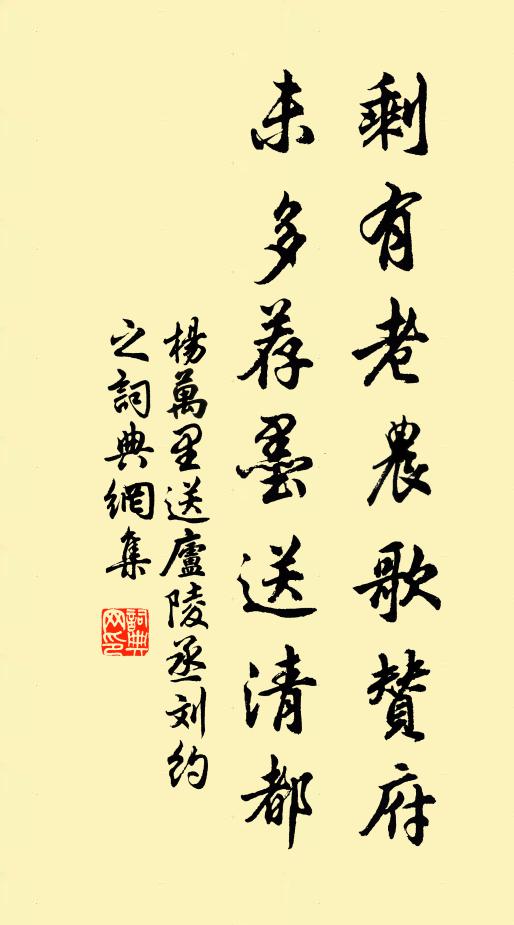 剩有老農歌贊府
未多荐墨送清都
楊萬里送廬陵丞刘约
之詞典網集
詞典
网印